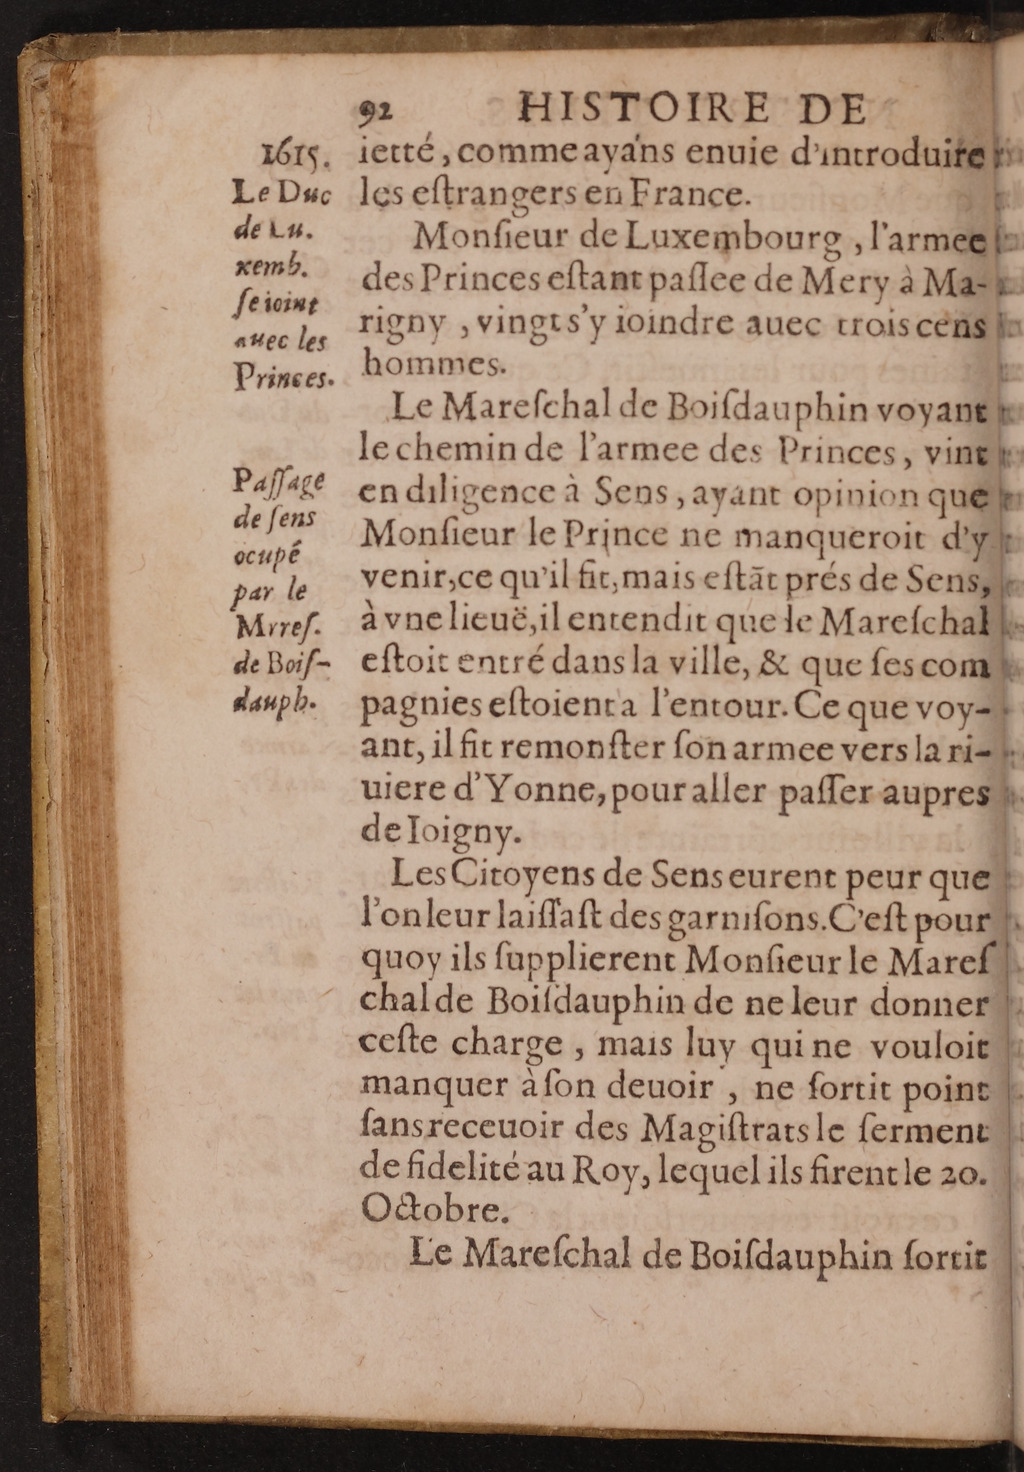 92 HISTOIRE DE
1615.
Le Duc
de Lu.
xemb.
ſe ioint
auec les
Princes.
Paſſage
de ſens
ocupé
par le
Mrreſ.
de Boiſ-
dauph.
ietté, comme ayans enuie d'introduire
les eſtrangers en France.
Monſieur de Luxembourg, l'armee
des Princes eſtant paſſee de Mery à Ma-
rigny, vingt s'y ioindre auec trois cens
hommes.
Le Mareſchal de Boiſdauphin voyant
le chemin de l'armee des Princes, vint
en diligence à Sens, ayant opinion que
Monſieur le Prince ne manqueroit d'y
venir, ce qu'il fit, mais eſtāt prés de Sens,
à vne lieuë, il entendit que le Mareſchal
eſtoit entré dans la ville, & que ſes com
pagnies eſtoient a l'entour. Ce que voy-
ant, il fit remonſter ſon armee vers la ri-
uiere d'Yonne, pour aller paſſer aupres
de Ioigny.
Les Citoyens de Sens eurent peur que
l'on leur laiſſaſt des garniſons. C'eſt pour
quoy ils ſupplierent Monſieur le Mareſ
chal de Boiſdauphin de ne leur donner
ceſte charge, mais luy qui ne vouloit
manquer à ſon deuoir, ne ſortit point
ſans receuoir des Magiſtrats le ſerment
de fidelité au Roy, lequel ils firent le 20.
Octobre.
Le Mareſchal de Boiſdauphin ſortit